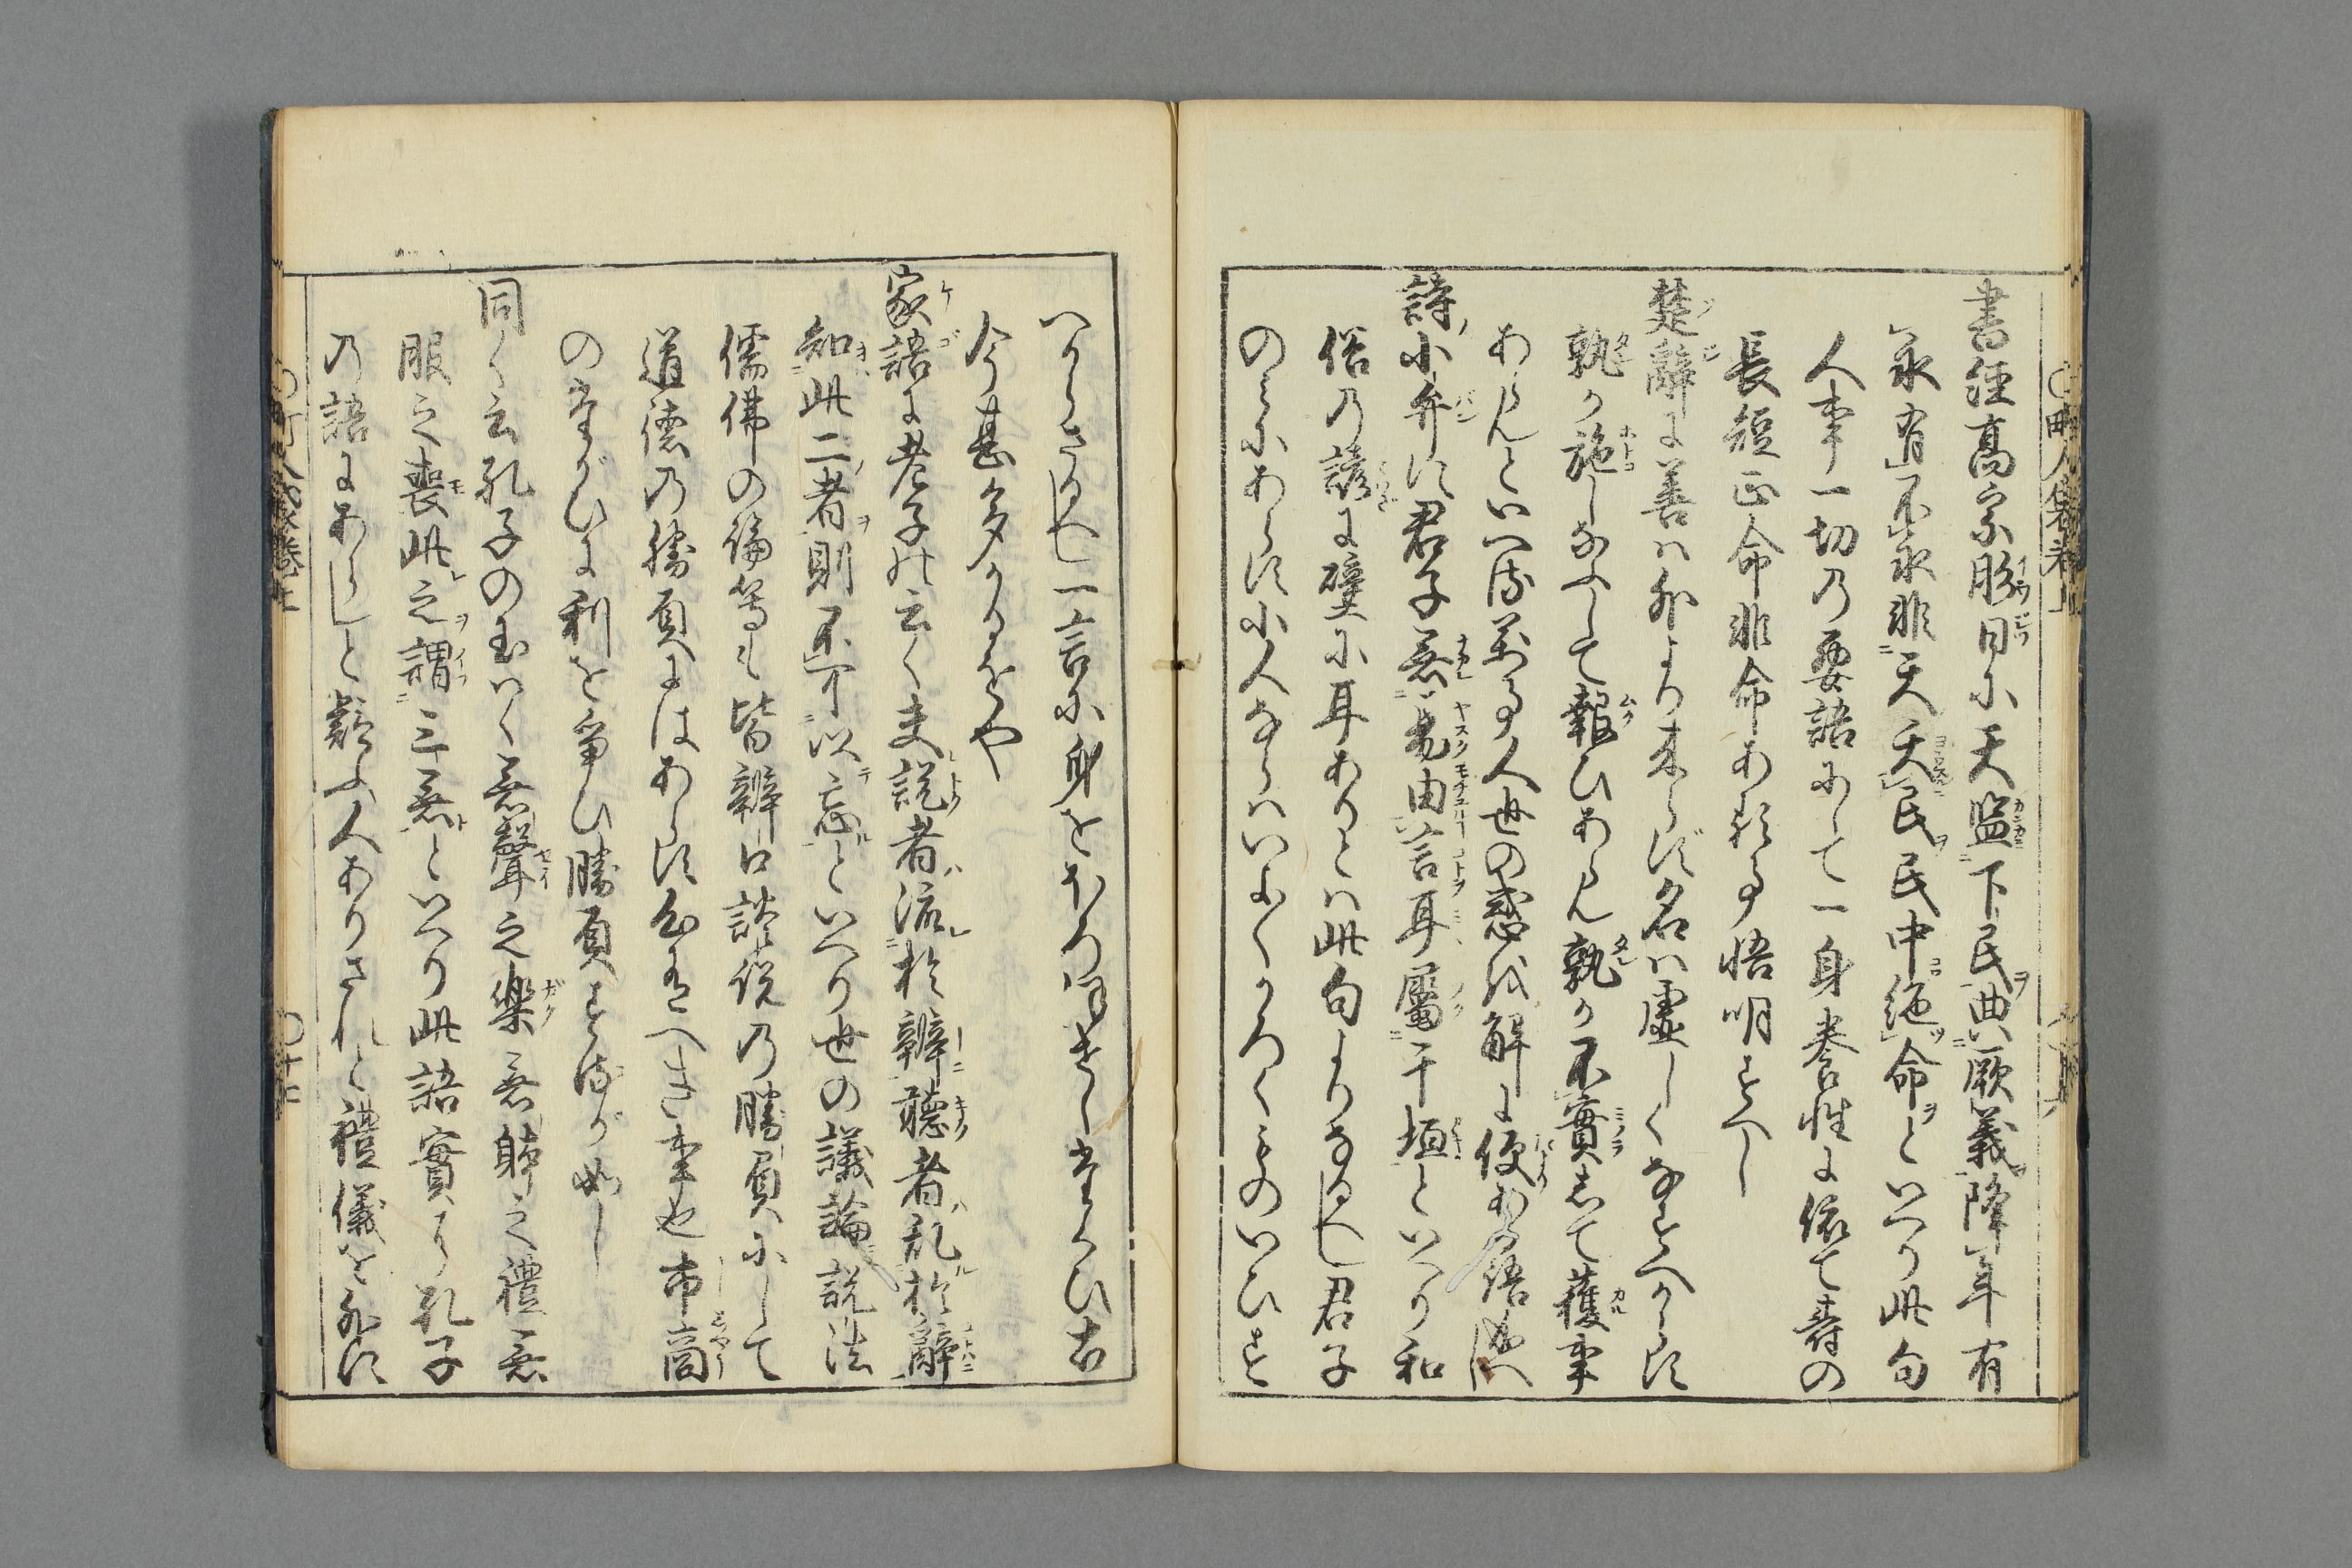 書経高宗肜日に天監下民典厥義降年有
永有不永非天夭民民中絶命といへり此句
人事一切の要語にして一身養性に依て壽の
長短正命非命ある事悟明すへし
楚辭に善は外より来らず名は虚しくなすへからす
孰か施しなふして報ひあらん孰か不實して穫事
あらんといへる万人世の惑を解に便ある語
詩小弁に君子無易由言耳屬于垣といへり和
俗の諺に壁に耳ありとは此句よりなるへし君子
のみにあらす小人ならはいよ〱かろ〱ものいひす
へからさるへし一言に身をほろほせしたくひ古
今甚多かるをや
家語に老子の云く夫説者流於辯聽者乱於辭
知此二者則不可以忘といへり世の議論説法
儒佛の論等も皆辯口談説の勝負にして
道徳の勝負にはあらす心有へき事也市商
のたがひに利を争ひ勝負するが如し
同く云孔子の玉はく無聲之樂無體之禮無
服之喪此之謂三無といへり此語實に孔子
の語にあらしと疑ふ人ありされと禮儀を外に